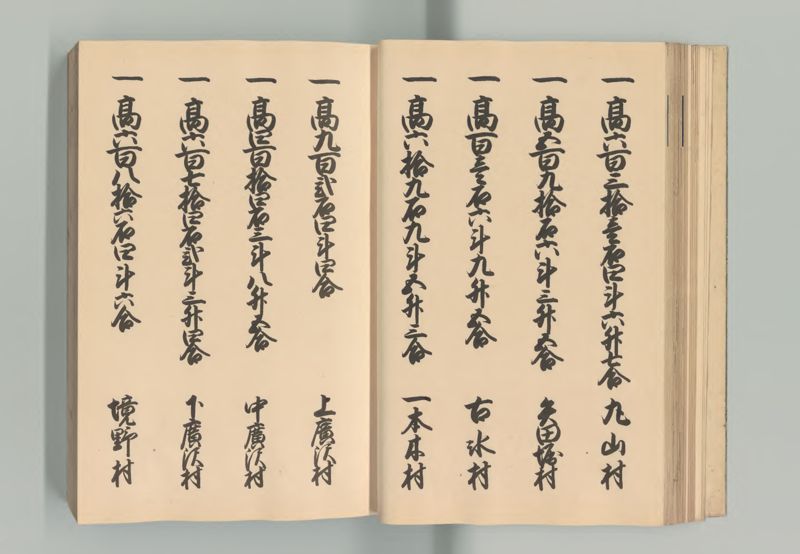 一 高六百三拾壱石四斗六升七合 丸山村
一 高五百九拾石六斗三升五合 矢田堀村
一 高百三石六斗九升五合 古氷村
一 高六拾九石九斗五升三合 一本木村
一 高九百弐石四斗四合 上廣沢村
一 高四百拾四石三斗八升五合 中廣沢村
一 高六百七拾四石弐斗三升四合 下廣沢村
一 高六百八拾六石四斗六合 境野村